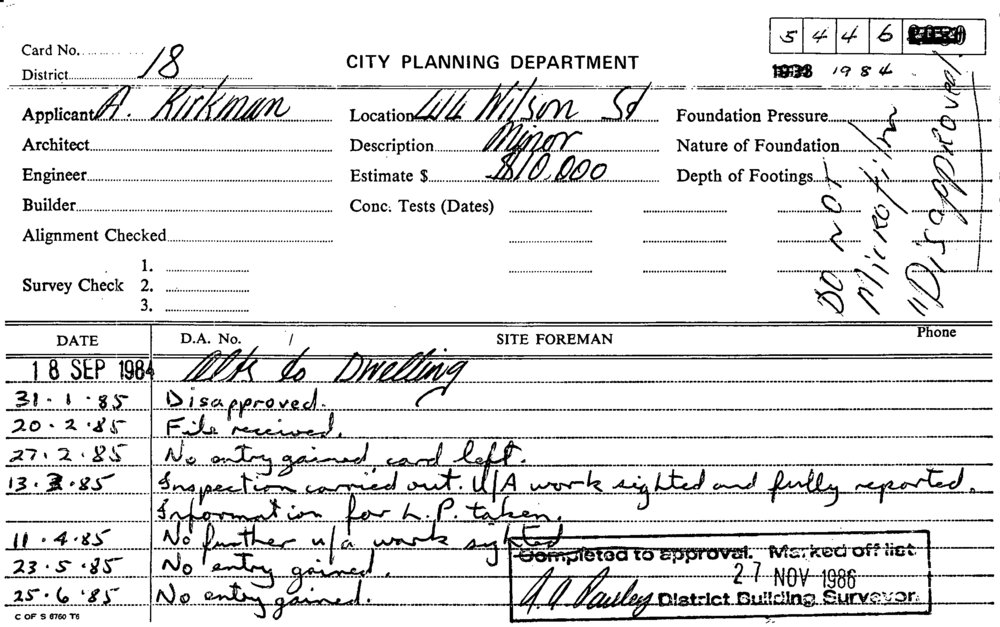 5 4 4 6
Card No.
District 18
CITY PLANNING DEPARTMENT
1984
Applicant A. Kirkman
Location 44 Wilson St
Foundation Pressure
Architect
Description Minor
Nature of Foundation
Engineer
Estimate $ $10,000
Depth of Footings
Builder
Conc. Tests (Dates)
Alignment Checked
Survey Check
1.
2.
3.
DO NOT
Microfilm
"Disapproved"
DATE
D.A. No. /
SITE FOREMAN
Phone
18 SEP 1984 Alts to Dwelling
31.1.85 Disapproved.
20.2.85 File received.
27.2.85 No entry gained, card left.
13.3.85 Inspection carried out. U/A work sighted and fully reported.
Information for L.P. taken.
11.4.85 No further u/a work sighted
23.5.85 No entry gained.
25.6.85 No entry gained.
Completed to approval. Marked off list.
27 NOV 1986
A. A. Pauley District Building Surveyor.
C OF S 8760 T6